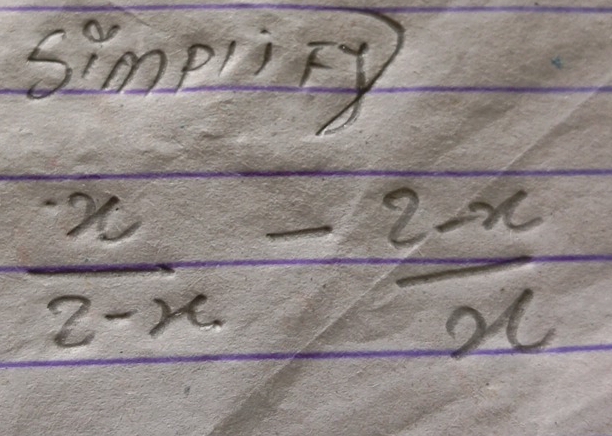 SimPliFy
x/2-x - 2-x/x